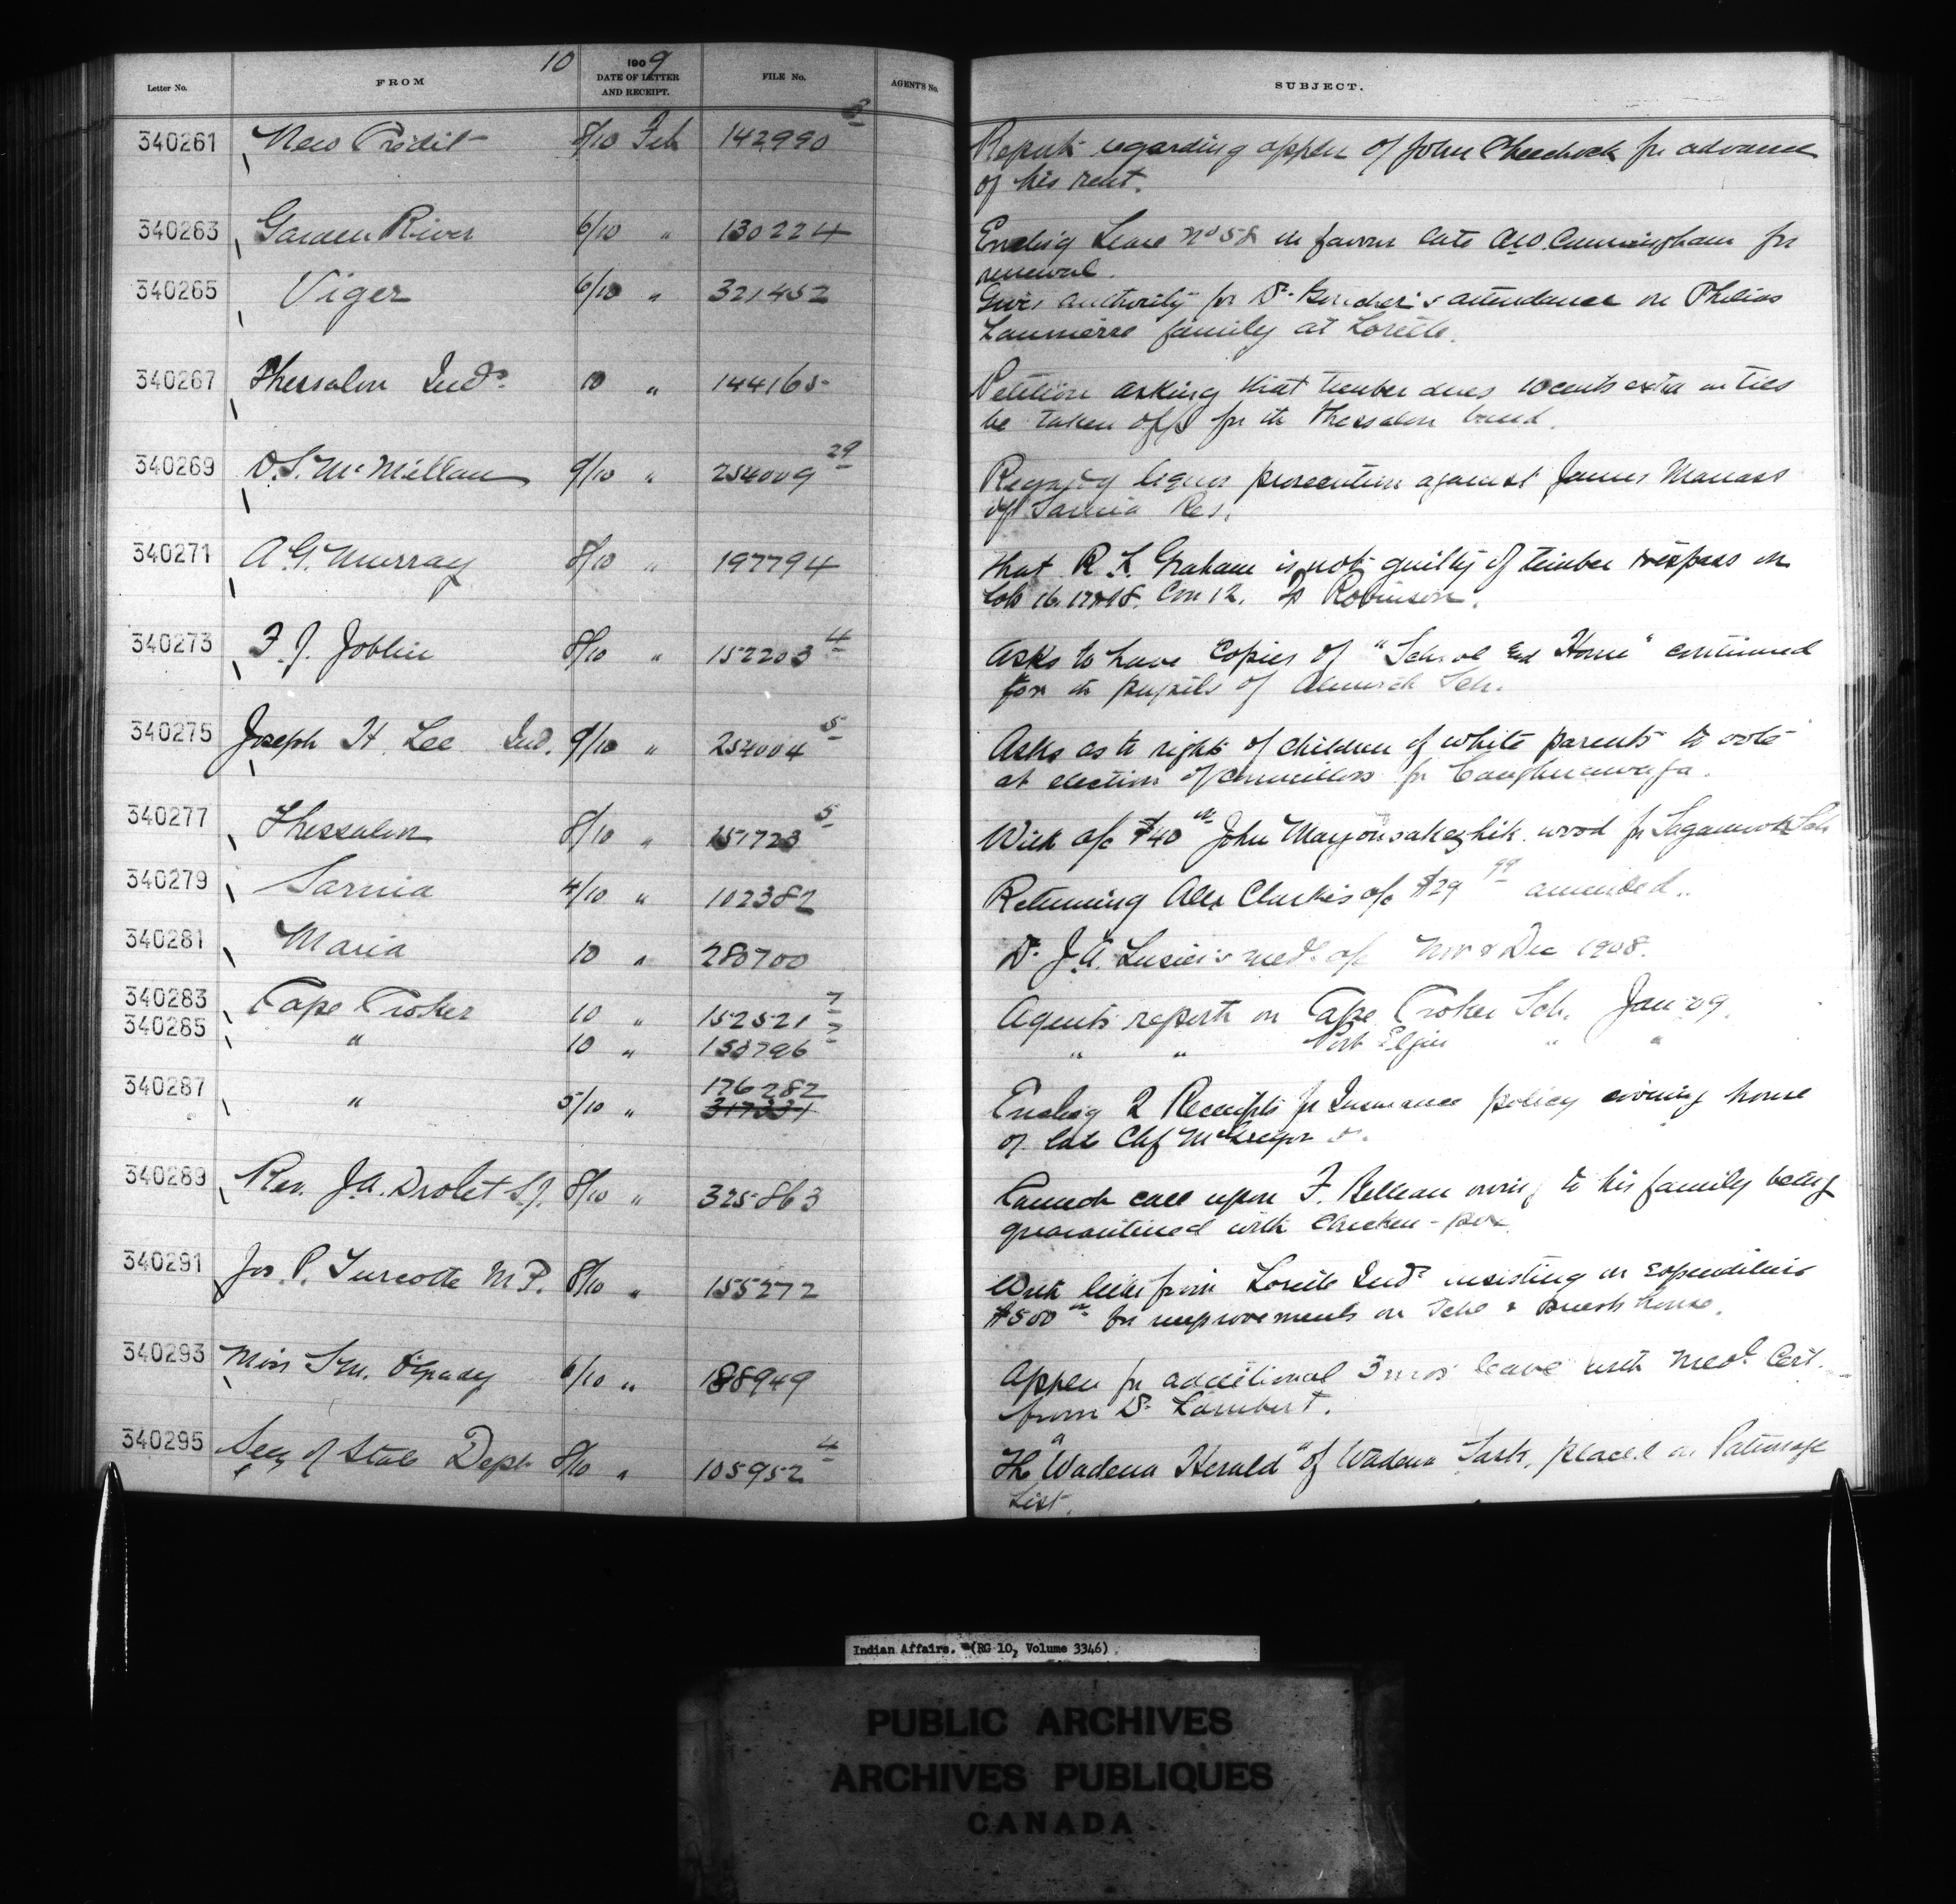 10 1909
Letter No. FROM DATE OF LETTER AND RECEIPT. FILE No. AGENT'S No. SUBJECT.
340261 New Credit 8/10 Feb 142990 3 Report regarding applen of John Cheechock for advance
of his rent.
340263 Garden River 6/10 " 130224 Enclosg Lease No 58 in favour late A.W. Cunningham for
renewal.
340265 Viger 6/10 " 321452 Gives authority for Dr. attendance on Philias
family at Lorette.
340267 Thessalon Inds. 10 " 144165 Petition asking that timber dues 10 cents extra on ties
be taken off for th Thessalon band.
340269 D.S. McMillan 9/10 " 254009 29 Regardg liquor prosecution against James Manass
of Sarnia Res.
340271 A.G. Murray 8/10 " 197794 that R.L. Graham is not guilty of timber trespass on
Lots 16. 17 & 18. Con 12. Tp Robinson.
340273 F.J. Joblin 8/10 " 152203 4 Asks to have copies of "School and Home" continued
for th pupils of Alnwick Sch.
340275 Joseph H. Lee Ind. 9/10 " 254004 5 Asks as to right of children of white parents to vote
at election of councillors for Caughnawaga.
340277 Thessalon 8/10 " 151723 5 With a/c $40 00 John wood for Sagamook Sch
340279 Sarnia 4/10 " 102382 Returning Alex Clarkes a/c $29 99 amended.
340281 Maria 10 " 280700 Dr. J.A. Lusier's medl a/c Nov & Dec 1908.
340283 Cape Croker 10 " 152521 7 Agents report on Cape Croker Sch. Jan 09.
340285 " 10 " 150796 2 " " Port Elgin " "
340287 " 5/10 " 176282
317331 Enclosg 2 Receipts for Insurance policy covering house
of late Chf McGregor
340289 Rev. J.A. Drolet S.J. 8/10 " 325863 Cannot call upon F. Belleau owing to his family being
quarantined with Chicken-pox
340291 Jos. P. Turcotte M.P. 8/10 " 155272 With letter from Lorette Inds insisting on expenditure
$500 00 for improvements on Schl & priests house.
340293 Miss S.M. O'Grady 6/10 " 188949 Applen for additional 3 mos leave with Medl Cert.
from Dr. Lambert.
340295 Secy of State Dept 8/10 " 105952 4 The "Wadena Herald" of Wadena Sask. placed on Patronage
List.
Indian Affairs. (RG 10, Volume 3346)
PUBLIC ARCHIVES
ARCHIVES PUBLIQUES
CANADA